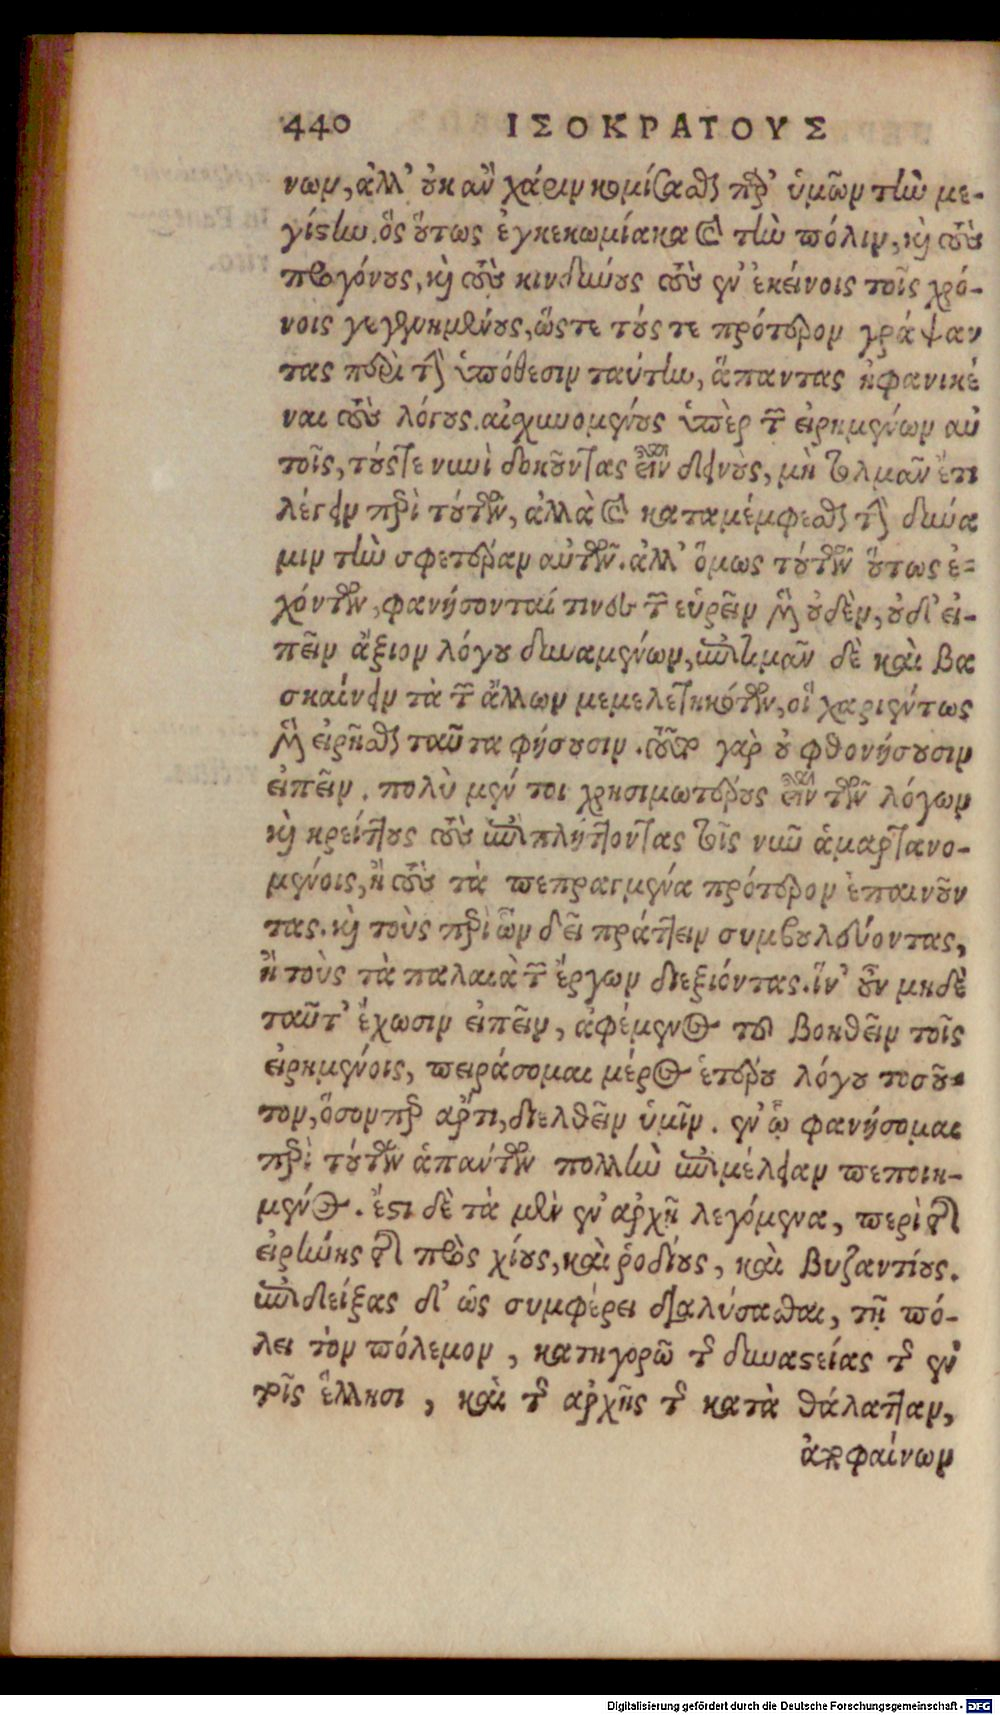 440 ΙΣΟΚΡΑΤΟΥΣ
νων, ἀλλ' οὐκ ἂν χάριν κομίσασθαι παρ' ὑμῶν τὴν με-
γίστην. ὃς οὕτως ἐγκεκωμίακα καὶ τὴν πόλιν, καὶ τοὺς
προγόνους, καὶ τοὺς κινδύνους τοὺς ἐν ἐκείνοις τοῖς χρό-
νοις γεγενημένους, ὥστε τούς τε πρότερον γράψαν
τας περὶ τὴν ὑπόθεσιν ταύτην, ἅπαντας ἠφανικέ
ναι τοὺς λόγους. αἰσχυνομένους ὑπὲρ τῶν εἰρημένων αὐ
τοῖς, τούς τε νυνὶ δοκοῦντας εἶναι δεινοὺς, μὴ τολμᾶν ἔτι
λέγειν περὶ τούτων, ἀλλὰ καὶ καταμέμφεσθαι τὴν δύνα
μιν τὴν σφετέραν αὐτῶν. ἀλλ' ὅμως τούτων οὕτως ἐ-
χόντων, φανήσονταί τινες τῶν εὑρεῖν μὲν οὐδὲν, οὐδ' εἰ-
πεῖν ἄξιον λόγου δυναμένων, ἐπιτιμᾶν δὲ καὶ βα
σκαίνειν τὰ τῶν ἄλλων μεμελετηκότων, οἳ χαριέντως
μὲν εἰρῆσθαι ταῦτα φήσουσιν. τοῦτο γὰρ οὐ φθονήσουσιν
εἰπεῖν. πολὺ μέν τοι χρησιμωτέρους εἶναι τῶν λόγων
καὶ κρείττους τοὺς ἐπιπλήττοντας τοῖς νῦν ἁμαρτανο-
μένοις, ἢ τοὺς τὰ πεπραγμένα πρότερον ἐπαινοῦν
τας. καὶ τοὺς περὶ ὧν δεῖ πράττειν συμβουλεύοντας,
ἢ τοὺς τὰ παλαιὰ τῶν ἔργων διεξιόντας. ἵν' οὖν μηδὲ
ταῦτ' ἔχωσιν εἰπεῖν, ἀφέμενος τοῦ βοηθεῖν τοῖς
εἰρημένοις, πειράσομαι μέρος ἑτέρου λόγου τοσοῦ-
τον, ὅσον περ ἄρτι, διελθεῖν ὑμῖν. ἐν ᾧ φανήσομαι
περὶ τούτων ἁπάντων πολλὴν ἐπιμέλειαν πεποιη-
μένος. ἔστι δὲ τὰ μὲν ἐν ἀρχῇ λεγόμενα, περὶ τῆς
εἰρήνης τῆς πρὸς χίους, καὶ ῥοδίους, καὶ βυζαντίους.
ἐπιδείξας δ' ὡς συμφέρει διαλύσασθαι, τῇ πό-
λει τὸν πόλεμον, κατηγορῶ τῆς δυναστείας τῆς ἐν
τοῖς ἕλλησι, καὶ τῆς ἀρχῆς τῆς κατὰ θάλατταν,
ἀποφαίνων
Digitalisierung gefördert durch die Deutsche Forschungsgemeinschaft - DFG